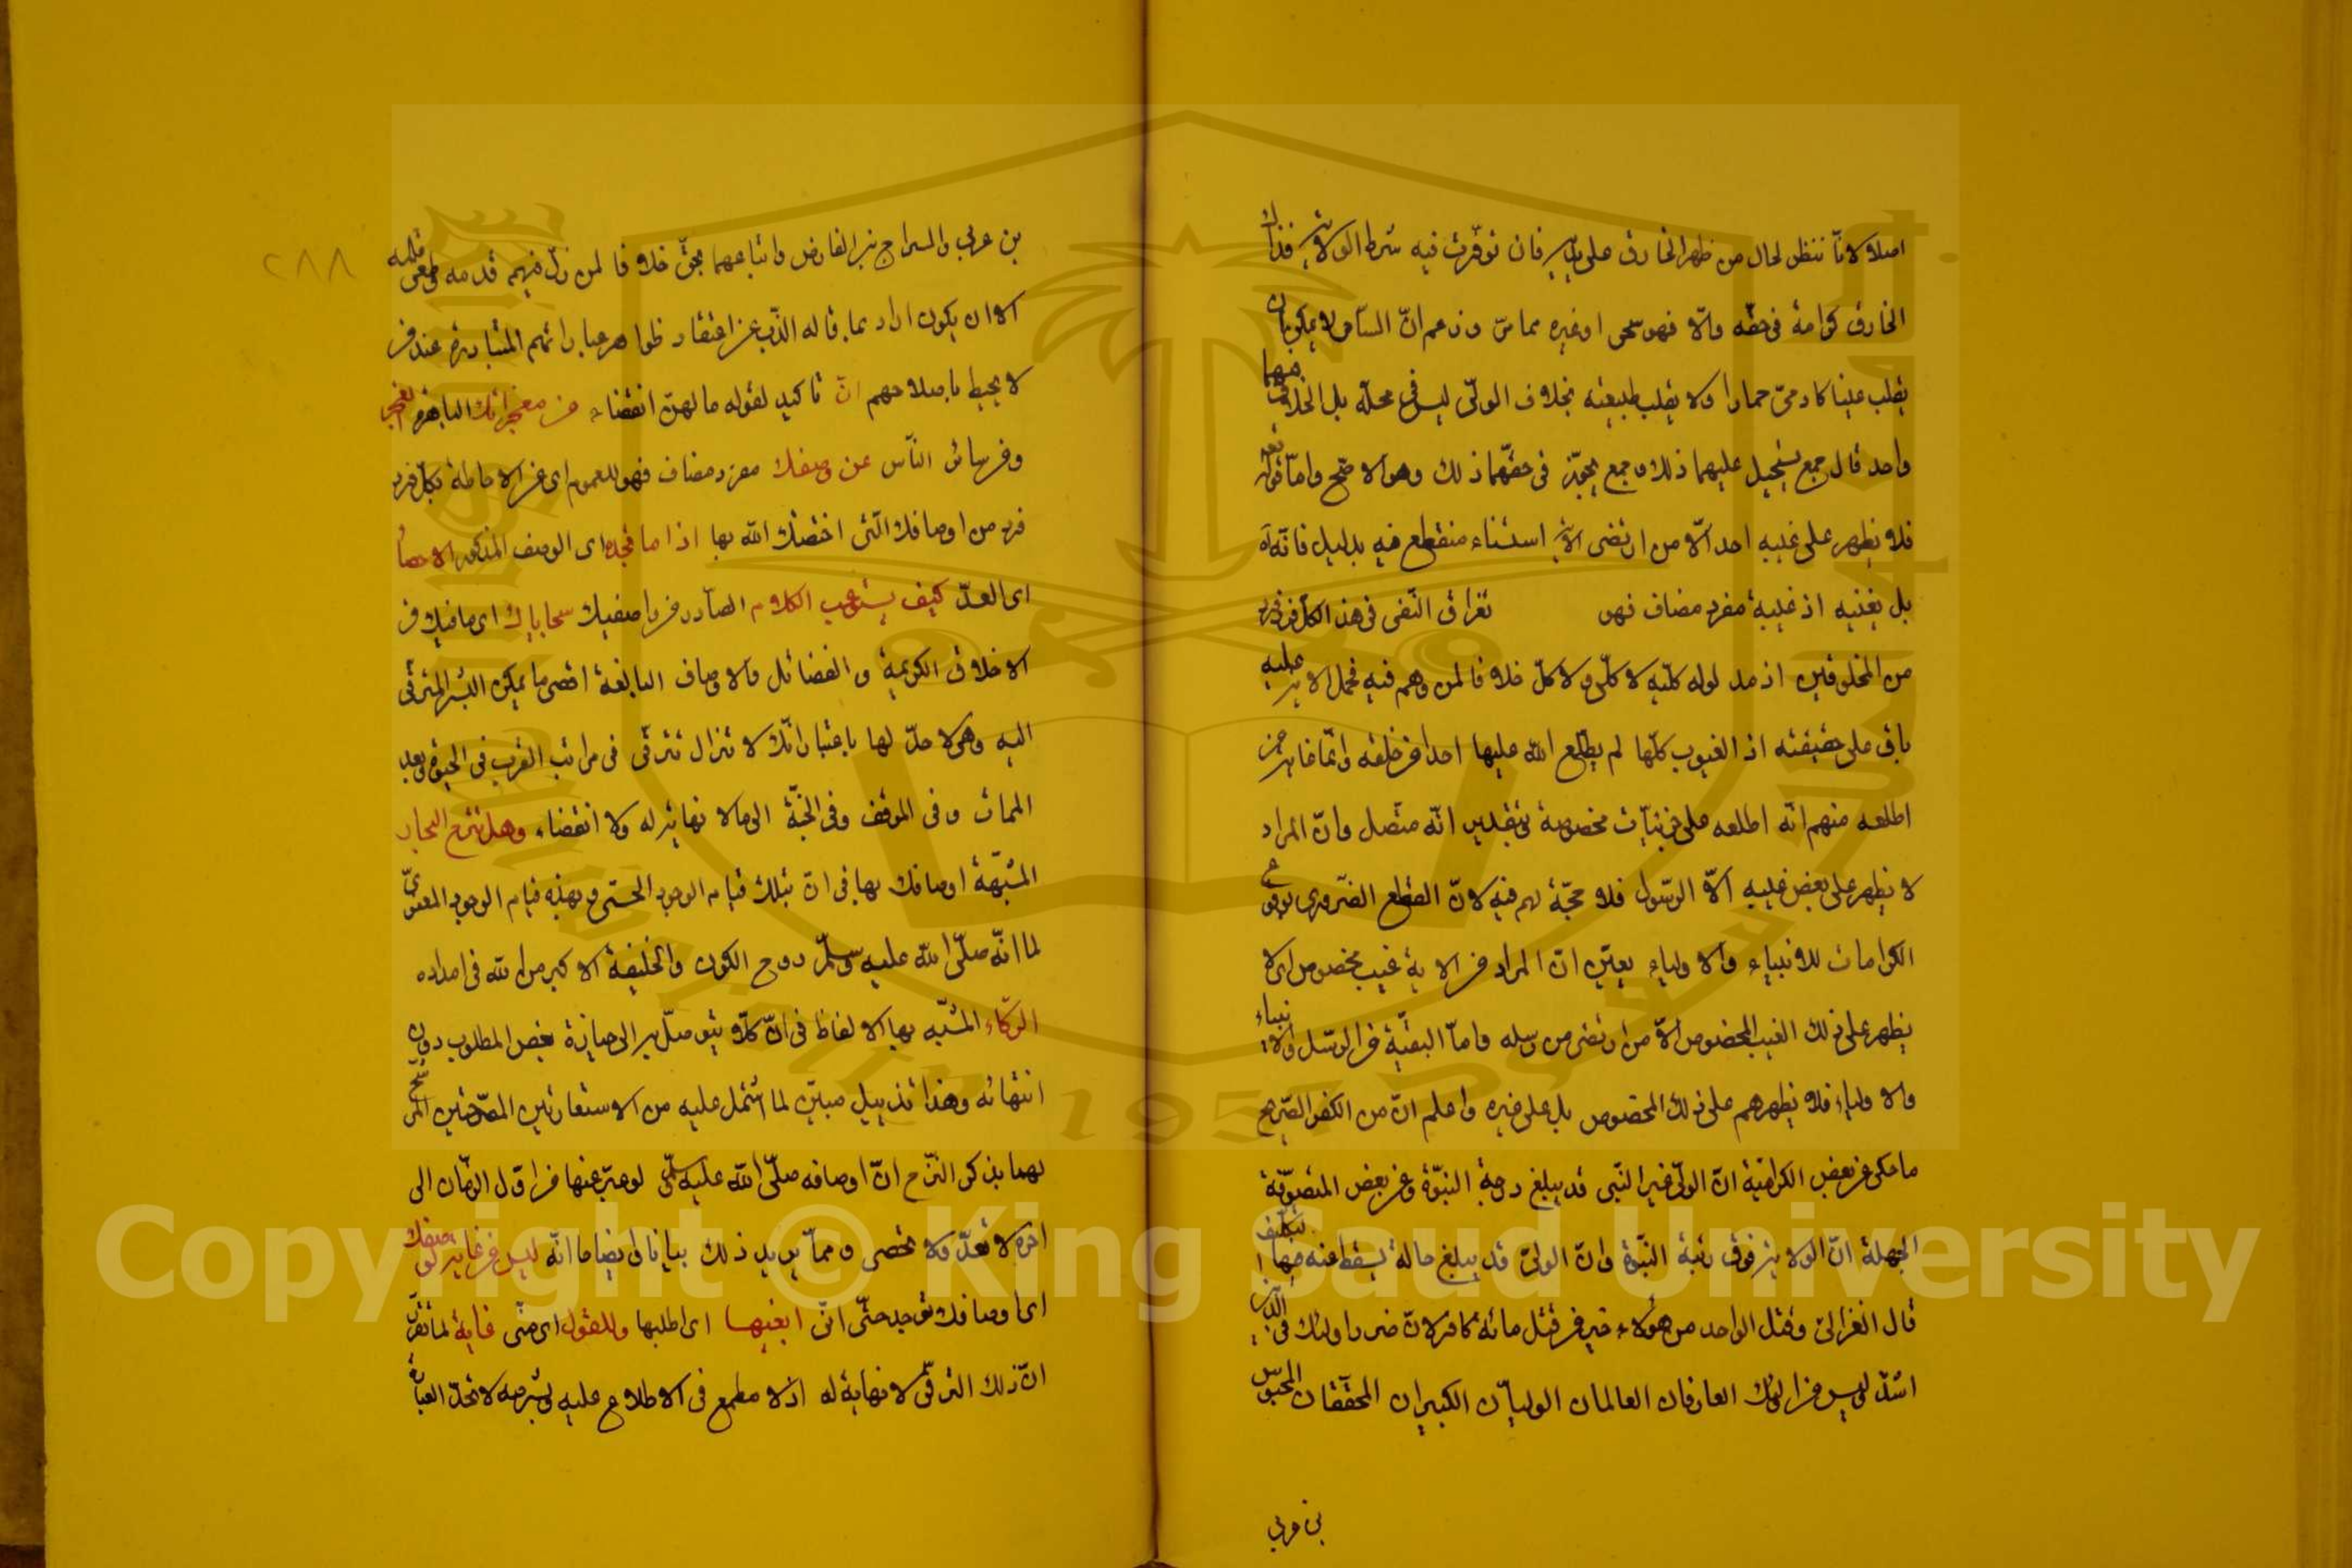 اصلا لانّا ننظر لحال من ظهر الخارق على يديه فان توفّرت فيه شرط الولاية فذاك
الخارق كرامة فى حقّه والّا فهو سحر او غيره مما مرّ وزعم انّ السّاحر لا يمكن ان
يقلب عينا كادمىّ حمارا ولا يقلب طبيعته بخلاف الولىّ ليس فى محلّه بل الخلاف فيهما
واحد قال جمع يستحيل عليهما ذلك وجمع يجوّز فى حقّهما ذلك وهو الاصحّ وامّا قوله تعه
فلا يظهر على غيبه احدا الّا من ارتضى الاية استثناء منقطع فيه بدليل فانّه اه
بل يغنيه اذ غيبه مفرد مضاف فهو تغراق النّفى فى هذ الكلّ فرد فرد
من المخلوقين اذ مدلوله كلّيه لا كلّى ولا كلّ خلافا لمن وهم فيه فحمل الاية عليه
باق على حقيقته اذ الغيوب كلّها لم يطّلع الله عليها احدا من خلقه وانّما غاية من
اطلعه منهم انّه اطلعه على جزئيّات مخصوصة وبتقدير انّه متّصل وانّ المراد
لا يظهر على بعض غيبه الّا الرّسول فلا حجّة لهم فيه لانّ القطع الضّرورى بوقوع
الكرامات للانبياء والاولياء يعيّن انّ المراد من الاية غيب مخصوص اى لا
يظهر على ذلك الغيب المخصوص الّا من ارتضى من رسله وامّا البقيّة من الرّسل والانبياء
والاولياء فلا يظهرهم على ذلك المخصوص بل على غيره واعلم انّ من الكفر الصّريح
ما حكى عن بعض الكرامّية انّ الولىّ غير النّبى قد يبلغ درجة النّبوّة وعن بعض المتصوّفة
الجهلة انّ الولاية فوق رتبة النّبوّة وانّ الولىّ قد يبلغ حالة يسقط عنه فيها التكليف
قال الغزالىّ وقتل الواحد من هؤلاء خير من قتل مائة كافر لانّ ضرر اولئك فى الدّين
اشدّ وليس من اولئك العارفان العالمان الوليّان الكبيران المحقّقان المحيوى
بن عربى
بن عربى والسراج بن الفارض واتباعهما بحقّ خلافا لمن زلّ فيهم قدمه وطغى قلمه
الا ان يكون اراد بما قاله الذّبّ عن اعتقاد ظواهر عباراتهم المتبادرة عند من
لا يحيط باصلاحهم انّ تاكيد لقوله ما لهنّ انقضاء من معجزاتك الباهرة العجز
وفى سائر النّاس عن وصفك مفرد مضاف فهو للعموم اى عن الاحاطة بكلّ فرد
فرد من اوصافك الّتى اختصّك الله بها اذ اما فى حده اى الوصف المذكور الاحصا
اى العدّ كيف يستوعب الكلام الصّادر من واصفيك سجاياك اى ما فيك من
الاخلاق الكريمة والفضائل والاوصاف البالغة اقصى ما يمكن البشر المترقى
اليه وهى لا حدّ لها باعتبار انّك لا تزال تترقّى فى مراتب القرب فى الحيوة وبعد
الممات وفى الموقف وفى الجنّة الى ما لا نهاية له ولا انقضاء وهل تنزح البحار
المشبّهة اوصافك بها فى انّ بتلك قيام الوجود الحسّى وبهذه قيام الوجود المعنوىّ
لما انّه صلّى الله عليه وسلّم روح الكون والخليفة الاكبر من الله فى امداده
الرّكاء المشبّه بها الالفاظ فى انّ كلّا يتوصّل به الى حيازة بعض المطلوب دون
انتهائه وهذا تذييل مبيّن لما اشتمل عليه من الاستعارتين المصرّحتين المرشّح
لهما بذكر النّزح انّ اوصافه صلّى الله عليه وسلّم لو عبّر عنها من اوّل الزّمان الى
اخره لا تعدّ ولا تحصى وممّا يزيد ذلك بيانا وايضاحا انّه ليس من غاية لوصفك
اى اوصافك توجد حتّى انّى ابغيها اى اطلبها وللقول اى منّى غاية لما تقرّر
انّ ذلك الترقّى لا نهاية له اذ لا مطمع فى الاطلاع عليه وشرحه لا تحدّ العبارة
٢٨٨
Copyright © King Saud University
1957